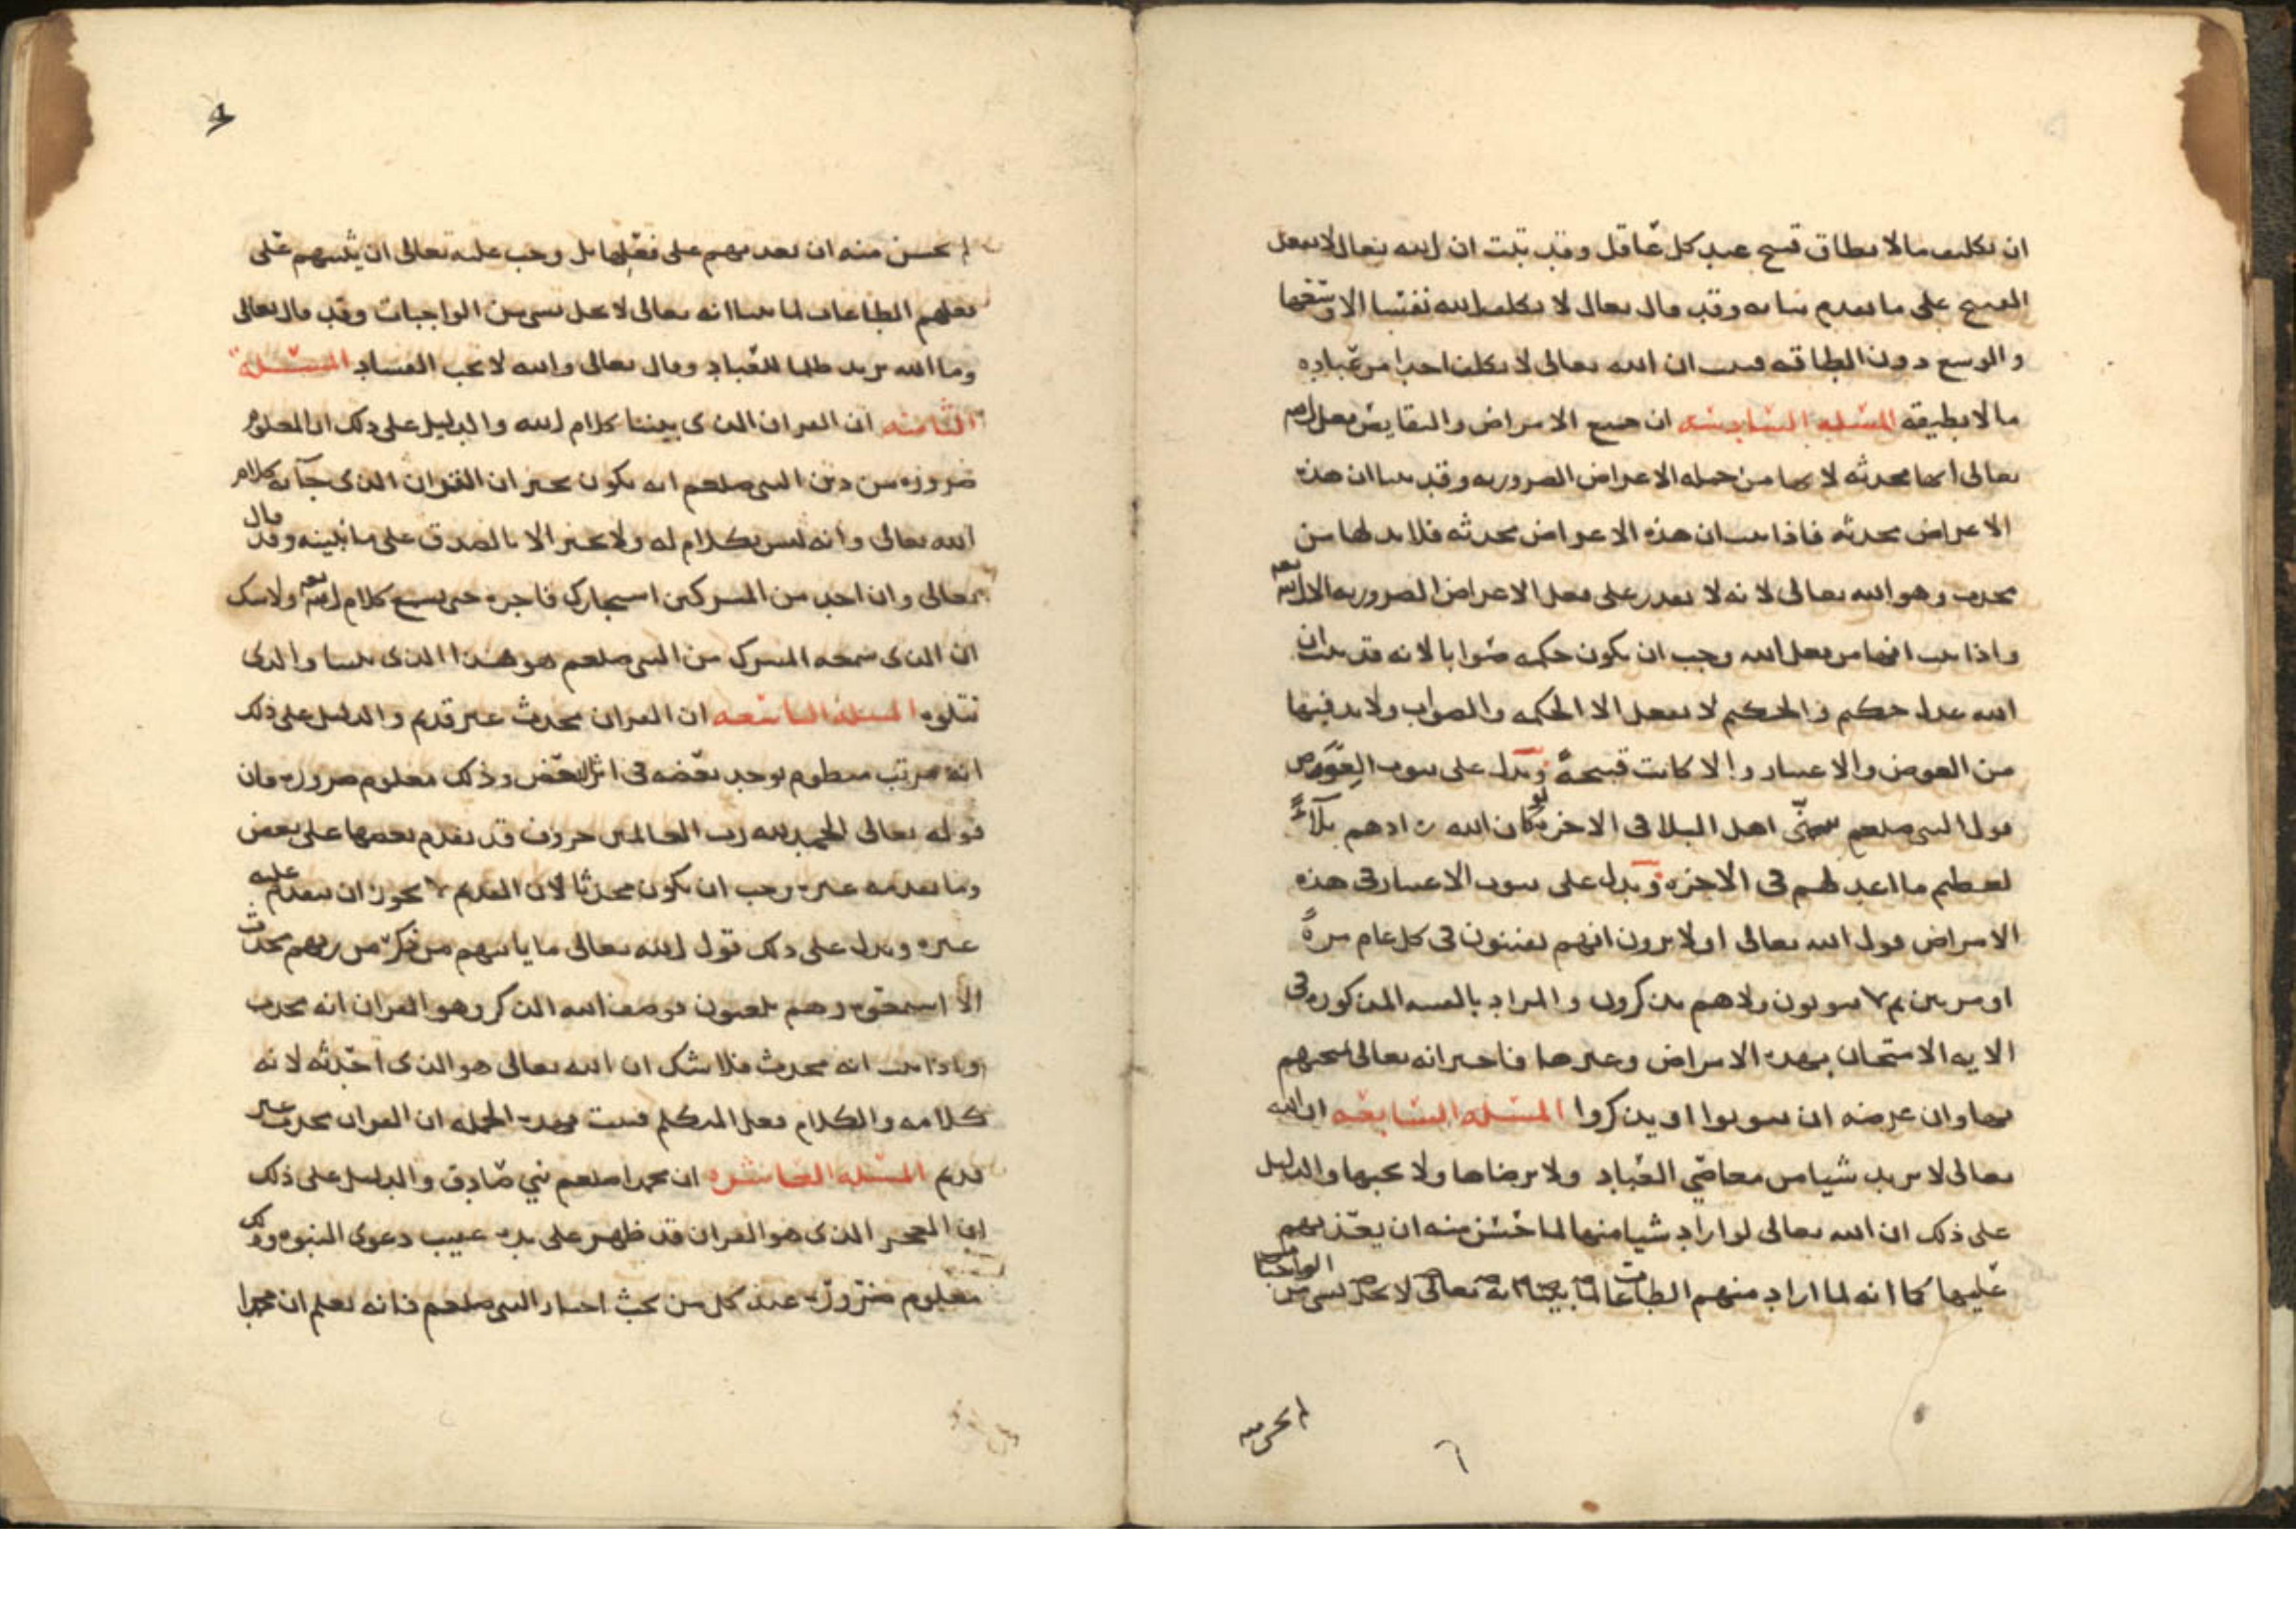 ان تكليف ما لا يطاق قبيح عند كل عاقل وقد ثبت ان الله تعالى لا يفعل
القبيح على ما تقدم بيانه وقد قال تعالى لا يكلف الله نفسا الا وسعها
والوسع دون الطاقه فثبت ان الله تعالى لا يكلف احدا من عباده
ما لا يطيقه المسئله السادسه ان جميع الامراض والنقايص فعل الله
تعالى انها محدثه لانها من جمله الاعراض الضروريه وقد بينا ان هذه
الاعراض محدثه فاذا ثبت ان هذه الاعراض محدثه فلا بد لها من
محدث وهو الله تعالى لانه لا يقدر على فعل الاعراض الضروريه الا الله تعه
واذا ثبت انها من فعل الله وجب ان يكون حكمه صوابا لانه قد ثبت ان
الله عدل حكيم والحكيم لا يفعل الا الحكمه والصواب ولا بد فيها
من العوض والاعتبار والا كانت قبيحة ويدل على ثبوت العوض
قول النبي صلعم يتمنى اهل البلا في الاخره لو كان الله زادهم بلآءً
لعظيم ما اعد لهم في الاخره ويدل على ثبوت الاعتبار في هذه
الامراض قول الله تعالى اولا يرون انهم يفتنون في كل عام مرةً
او مرتين ثم لا يتوبون ولا هم يذكرون والمراد بالفتنه المذكوره في
الايه الامتحان بهذه الامراض وغيرها فاخبر انه تعالى يمتحنهم
بها وان غرضه ان يتوبوا او يذكروا المسئله السابعه ان الله
تعالى لا يريد شيا من معاصي العباد ولا يرضاها ولا يحبها والدليل
على ذلك ان الله تعالى لو اراد شيا منها لما حسن منه ان يعذبهم
عليها كما انه لما اراد منهم الطاعات لما بينا انه تعالى لا يخل بشي من الواجبات
لم يحسن منه
٦
٤
لم يحسن منه ان يعذبهم على فعلها بل وجب عليه تعالى ان يثيبهم على
فعلهم الطاعات لما بينا انه تعالى لا يخل بشي من الواجبات وقد قال تعالى
وما الله يريد ظلما للعباد وقال تعالى والله لا يحب الفساد المسئلة
الثامنه ان القران الذي بيننا كلام الله والدليل على ذلك ان المعلوم
ضروره من دين النبي صلعم انه يكون يخبر ان القران الذي جآ به كلام
الله تعالى وانه ليس بكلام له ولا يخبر الا بالصدق على ما نبينه وقد قال
تعالى وان احد من المشركين استجارك فاجره حتى يسمع كلام الله تعه ولا شك
ان الذي سمعه المشرك من النبي صلعم هو هذا الذي بيننا والذي
نتلوه المسئلة التاسعه ان القران محدث غير قديم والدليل على ذلك
انه مرتب منظوم يوجد بعضه في اثر بعض وذلك معلوم ضروره فان
قوله تعالى الحمد لله رب العالمين حروف قد تقدم بعضها على بعض
وما تقدمه غيره وجب ان يكون محدثا لان القديم لا يجوز ان يتقدم عليه
غيره ويدل على ذلك قول الله تعالى ما ياتيهم من ذكر من ربهم محدث
الا استمعوه وهم يلعبون فوصف الله الذكر وهو القران انه محدث
واذا ثبت انه محدث فلا شك ان الله تعالى هو الذي احدثه لانه
كلامه والكلام فعل المتكلم فثبت بهذه الجمله ان القران محدث غير
قديم المسئله العاشره ان محمدا صلعم نبي صادق والدليل على ذلك
ان المعجز الذي هو القران قد ظهر على يده عقيب دعوى النبوه وذلك
معلوم ضرورة عند كل من بحث اخبار النبي صلعم فانه يعلم ان محمدا